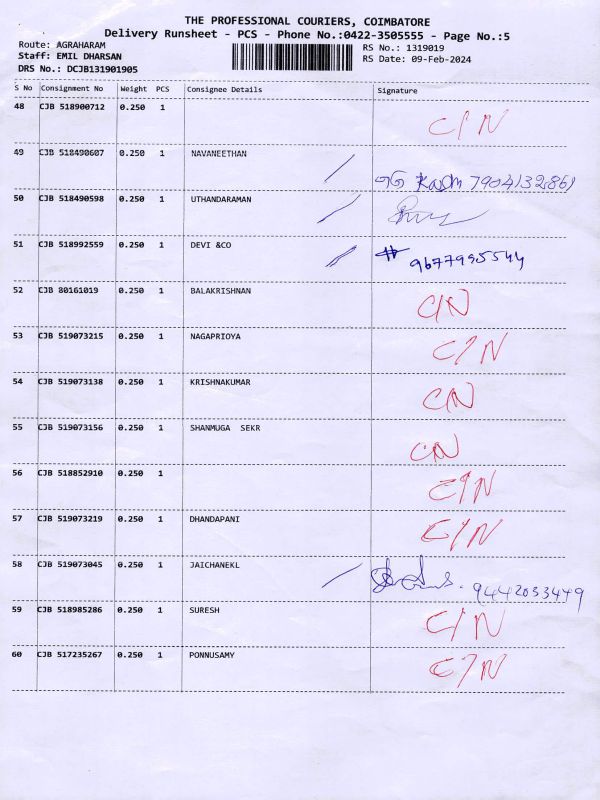 THE PROFESSIONAL COURIERS, COIMBATORE
Delivery Runsheet - PCS - Phone No.:0422-3505555 - Page No.:5
Route: AGRAHARAM RS No.: 1319019
Staff: EMIL DHARSAN RS Date: 09-Feb-2024
DRS No.: DCJB131901905
S No Consignment No Weight PCS Consignee Details Signature
48 CJB 518900712 0.250 1 C/N
49 CJB 518490607 0.250 1 NAVANEETHAN 7904132861
50 CJB 518490598 0.250 1 UTHANDARAMAN
51 CJB 518992559 0.250 1 DEVI &CO 9677995544
52 CJB 80161019 0.250 1 BALAKRISHNAN C/N
53 CJB 519073215 0.250 1 NAGAPRIOYA C/N
54 CJB 519073138 0.250 1 KRISHNAKUMAR C/N
55 CJB 519073156 0.250 1 SHANMUGA SEKR C/N
56 CJB 518852910 0.250 1 C/N
57 CJB 519073219 0.250 1 DHANDAPANI C/N
58 CJB 519073045 0.250 1 JAICHANEKL 9442033449
59 CJB 518985286 0.250 1 SURESH C/N
60 CJB 517235267 0.250 1 PONNUSAMY C/N